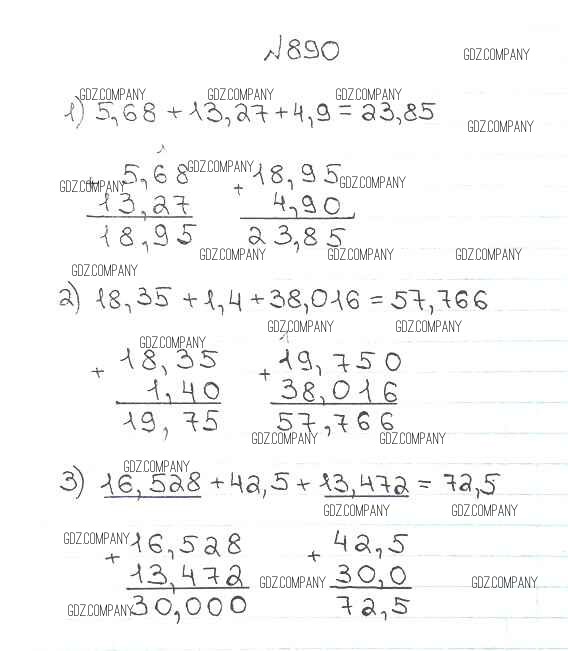 №890
GDZ.COMPANY
GDZ.COMPANY GDZ.COMPANY GDZ.COMPANY
1) 5,68 + 13,27 + 4,9 = 23,85
GDZ.COMPANY
1
5,68 GDZ.COMPANY 18,95
GDZ.COMPANY + + GDZ.COMPANY
13,27 4,90
18,95 23,85
GDZ.COMPANY GDZ.COMPANY GDZ.COMPANY
GDZ.COMPANY
2) 18,35 + 1,4 + 38,016 = 57,766
GDZ.COMPANY GDZ.COMPANY
GDZ.COMPANY 1
+ 18,35 + 19,750
1,40 38,016
19,75 57,766
GDZ.COMPANY GDZ.COMPANY
GDZ.COMPANY
3) 16,528 + 42,5 + 13,472 = 72,5
GDZ.COMPANY GDZ.COMPANY
GDZ.COMPANY + 16,528 + 42,5
13,472 GDZ.COMPANY 30,0 GDZ.COMPANY
GDZ.COMPANY 30,000 72,5